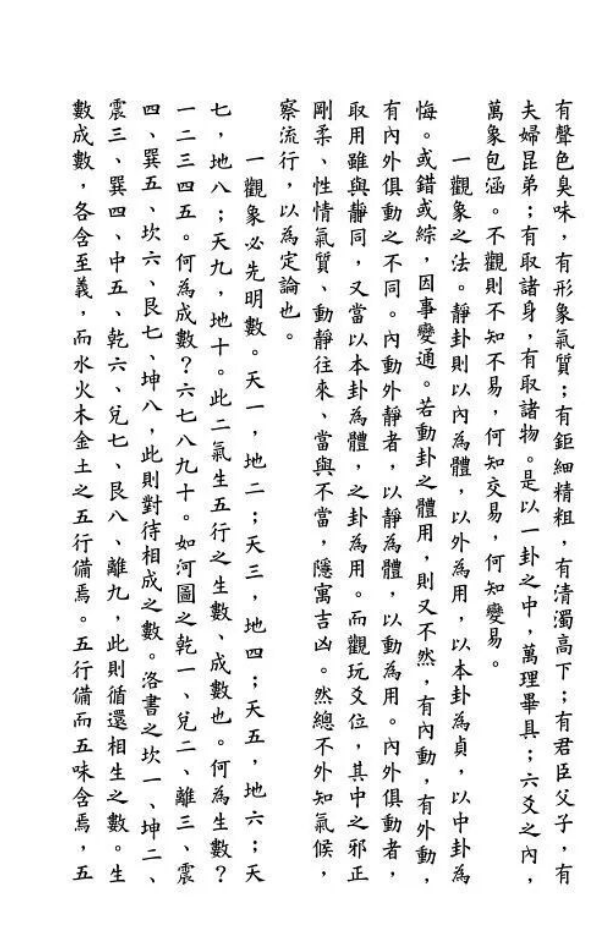 有聲色臭味，有形象氣質；有鉅細精粗，有清濁高下；有君臣父子，有
夫婦昆弟；有取諸身，有取諸物。是以一卦之中，萬理畢具；六爻之內，
萬象包涵。不觀則不知不易，何知交易，何知變易。
一觀象之法。靜卦則以內為體，以外為用，以本卦為貞，以中卦為
悔。或錯或綜，因事變通。若動卦之體用，則又不然，有內動，有外動，
有內外俱動之不同。內動外靜者，以靜為體，以動為用。內外俱動者，
取用雖與靜同，又當以本卦為體，之卦為用。而觀玩爻位，其中之邪正
剛柔、性情氣質、動靜往來、當與不當，隱寓吉凶。然總不外知氣候，
察流行，以為定論也。
一觀象必先明數。天一，地二；天三，地四；天五，地六；天
七，地八；天九，地十。此二氣生五行之生數、成數也。何為生數？
一二三四五。何為成數？六七八九十。如河圖之乾一、兌二、離三、震
四、巽五、坎六、艮七、坤八，此則對待相成之數。洛書之坎一、坤二、
震三、巽四、中五、乾六、兌七、艮八、離九，此則循還相生之數。生
數成數，各含至義，而水火木金土之五行備焉。五行備而五味含焉，五